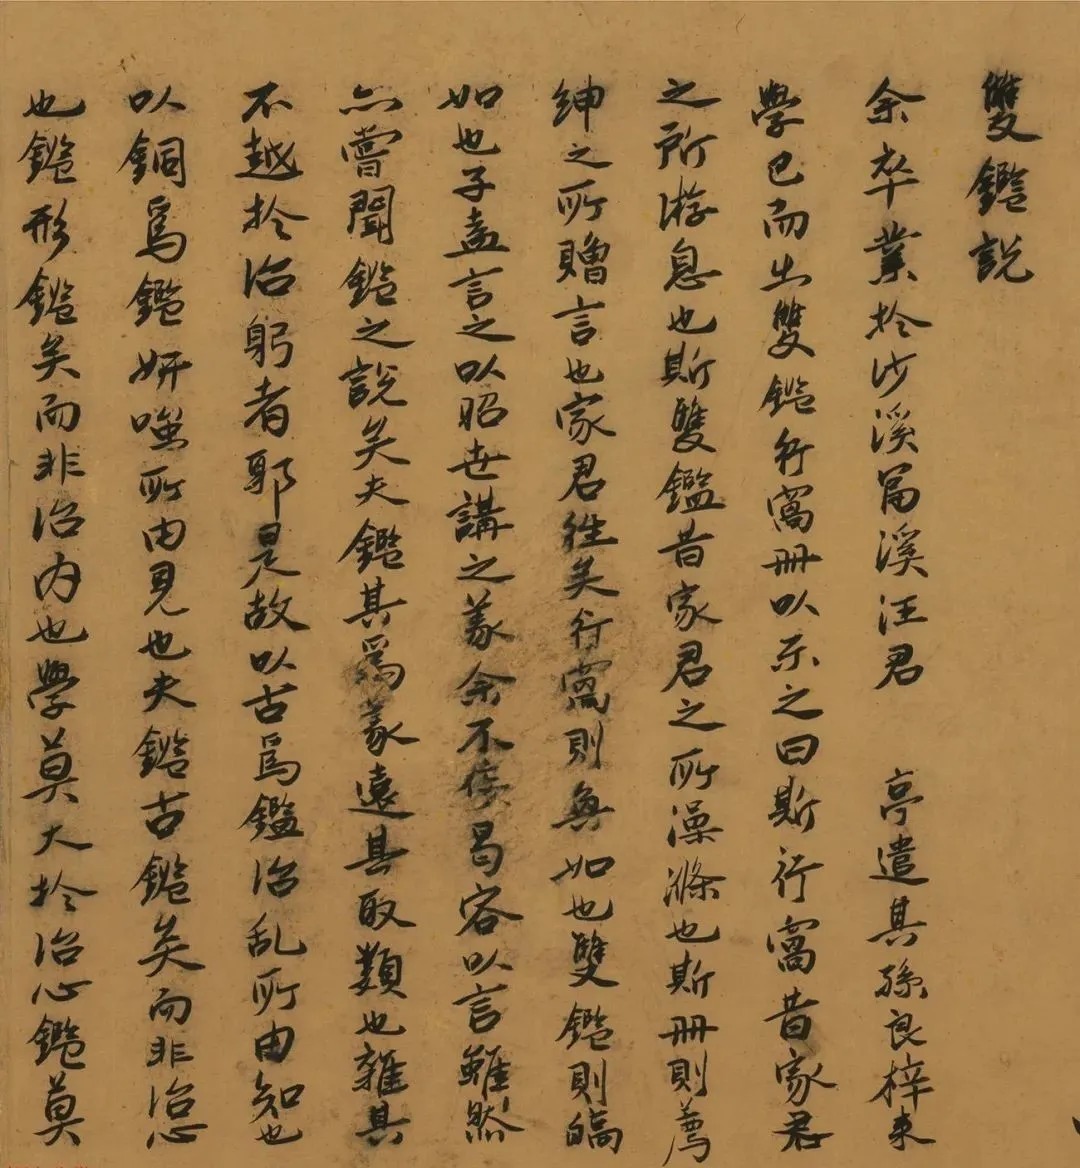 雙鑑說
余卒業於沙溪富溪汪君 亭遣其孫良梓來
學已而出雙鑑行窩冊以示之曰斯行窩昔家君
之所游息也斯雙鑑昔家君之所澡滌也斯冊則薦
紳之所贈言也家君徃矣行窩則無如也雙鑑則皜
如也子盍言之以昭世講之義余不佞曷容以言雖然
亦嘗聞鑑之說矣夫鑑其為義遠其取類也雜其
不越於治躬者耶是故以古為鑑治乱所由知也
以銅為鑑妍媸所由見也夫鑑古鑑矣而非治
也鑑形鑑矣而非治內也學莫大於治心鑑莫